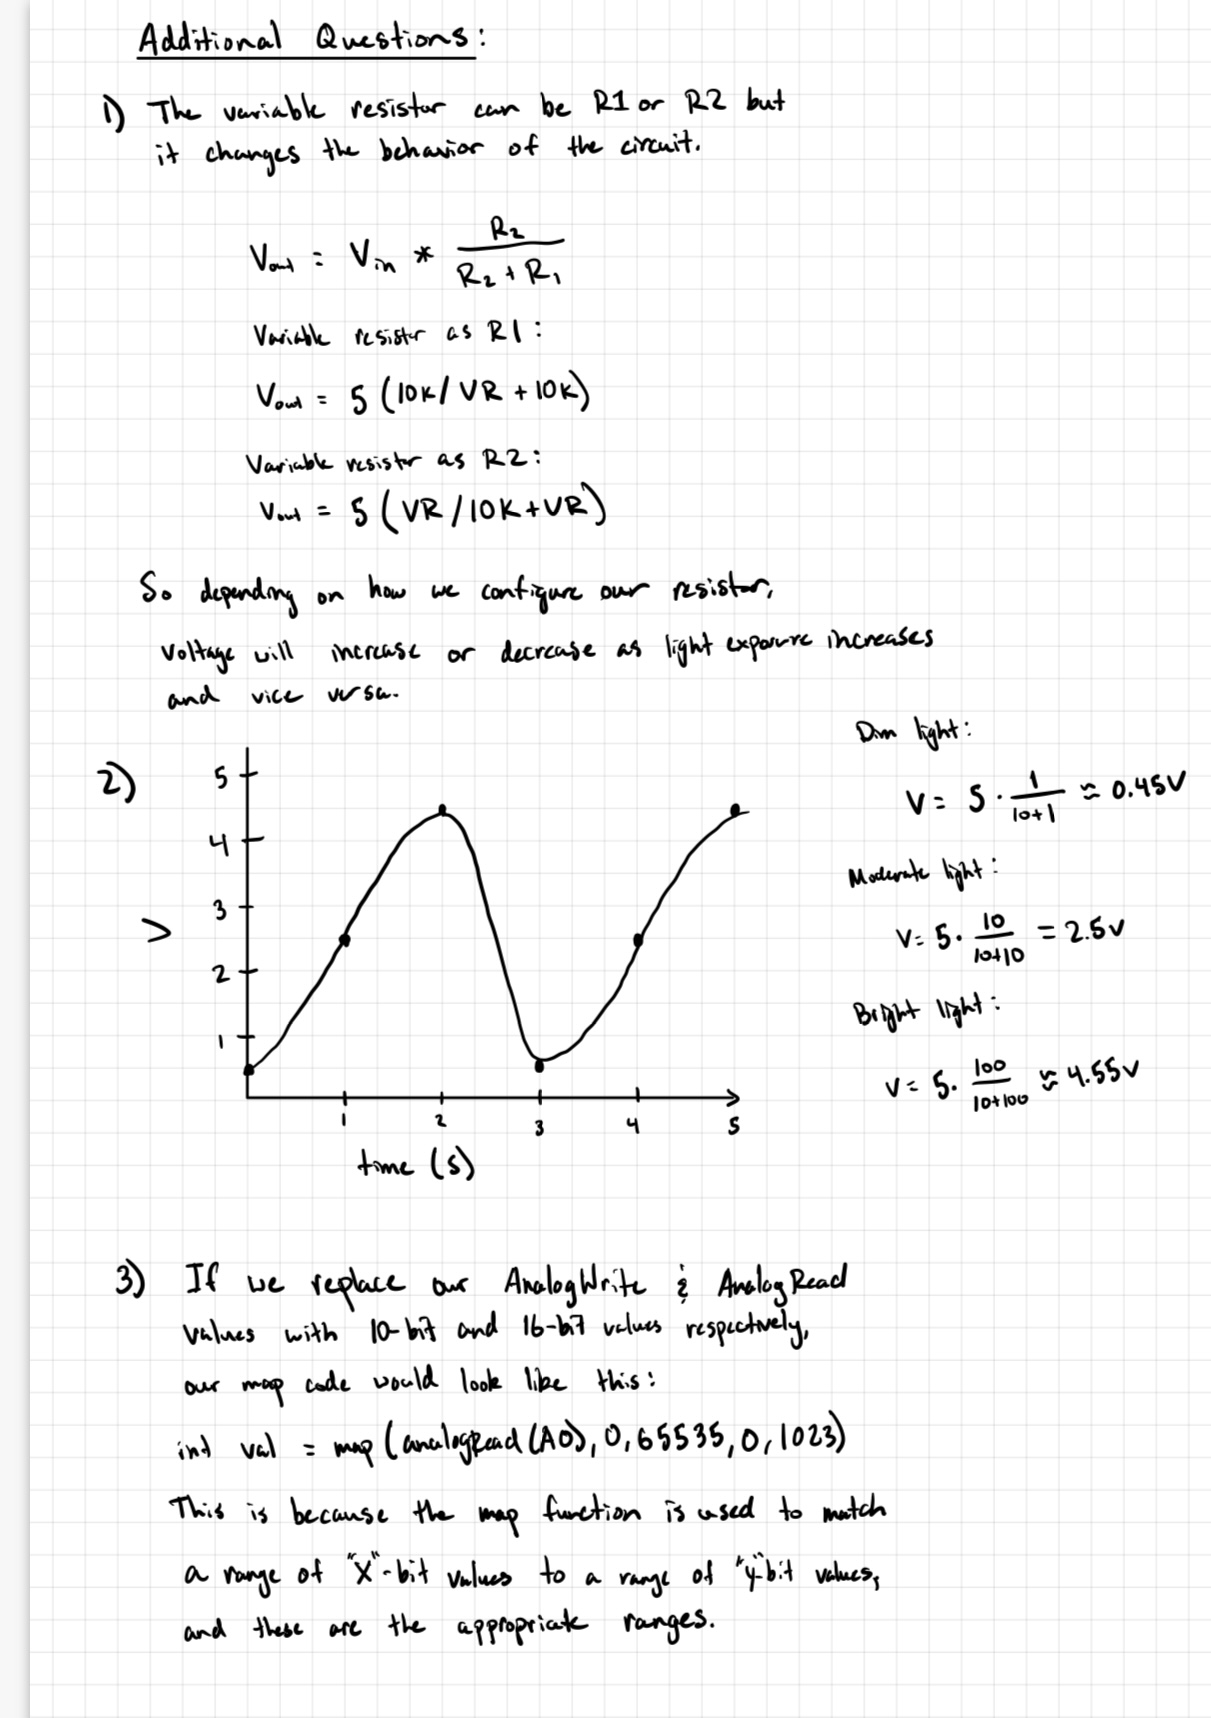 Additional Questions:
1) The variable resistor can be R1 or R2 but
it changes the behavior of the circuit.
Vout = Vin * R2 / (R2 + R1)
Variable resistor as R1:
Vout = 5 (10K/ VR + 10K)
Variable resistor as R2:
Vout = 5 (VR /10K+VR)
So depending on how we configure our resistor,
voltage will increase or decrease as light exposure increases
and vice versa.
2)
5
4
3
2
1
V
1 2 3 4 5
time (s)
Dim light:
V = 5 · 1/(10+1) ≈ 0.45V
Moderate light:
V = 5 · 10/(10+10) = 2.5V
Bright light:
V = 5 · 100/(10+100) ≈ 4.55V
3) If we replace our AnalogWrite & AnalogRead
values with 10-bit and 16-bit values respectively,
our map code would look like this:
int val = map (analogRead (A0), 0, 65535, 0, 1023)
This is because the map function is used to match
a range of "X"-bit values to a range of "y"-bit values,
and these are the appropriate ranges.